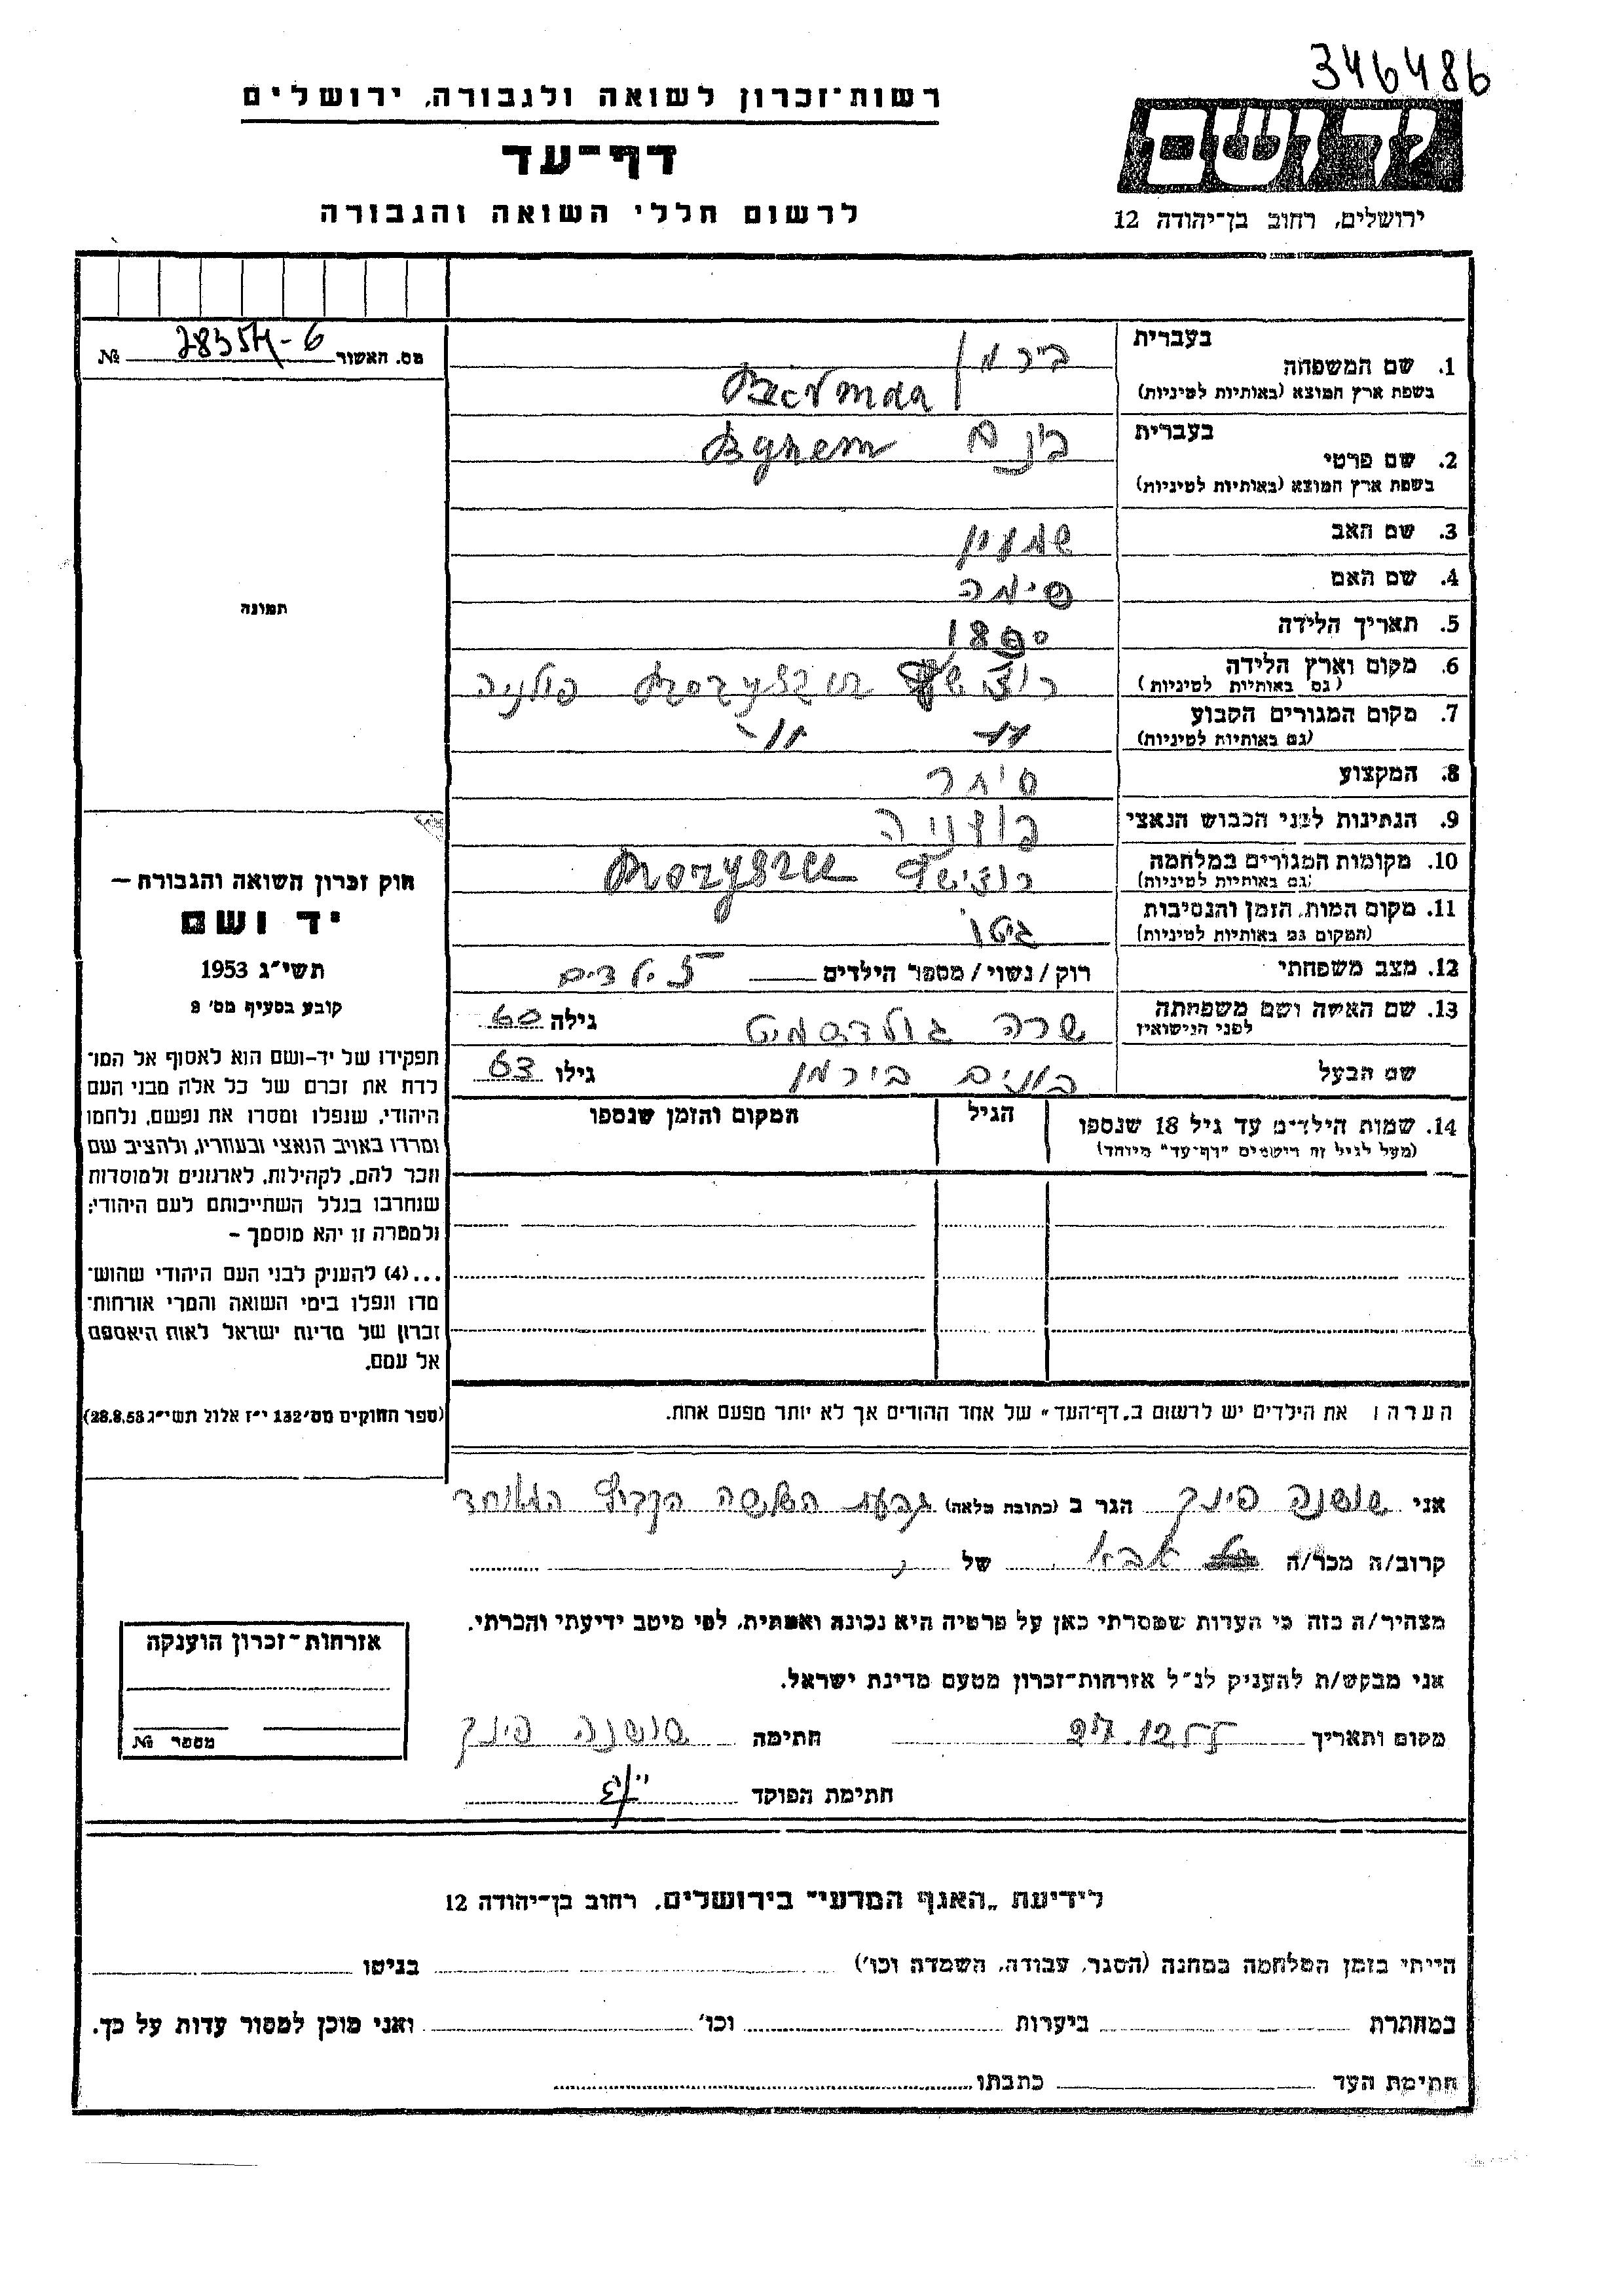 346486
רשות־זכרון לשואה ולגבורה, ירושלים
דף־עד
לרשום חללי השואה והגבורה
יד ושם
ירושלים, רחוב בן־יהודה 12
מס. האשור № 
1. שם המשפחה
בעברית בירמן
בשפת ארץ המוצא (באותיות לטיניות) Birman
2. שם פרטי
בעברית בונם
בשפת ארץ המוצא (באותיות לטיניות)
3. שם האב שמעון
4. שם האם סימה
5. תאריך הלידה
6. מקום וארץ הלידה פולניה
(גם באותיות לטיניות)
7. מקום המגורים הקבוע -"-
(גם באותיות לטיניות)
8. המקצוע סוחר
9. הנתינות לפני הכבוש הנאצי פולניה
10. מקומות המגורים במלחמה
(גם באותיות לטיניות)
11. מקום המות, הזמן והנסיבות גיטו
(המקום גם באותיות לטיניות)
12. מצב משפחתי רוק / נשוי / מספר הילדים ילדים
13. שם האשה ושם משפחתה שרה גולדסמיט גילה 60
לפני הנישואין
שם הבעל בונים בירמן גילו 63
14. שמות הילדים עד גיל 18 שנספו הגיל המקום והזמן שנספו
(מעל לגיל זה רישמים "דף־עד" מיוחד)
הערה: את הילדים יש לרשום ב„דף־העד" של אחד ההורים אך לא יותר מפעם אחת.
תמונה
חוק זכרון השואה והגבורה —
יד ושם
תשי"ג 1953
קובע בסעיף מס' 2
תפקידו של יד־ושם הוא לאסוף אל המו־
לדת את זכרם של כל אלה מבני העם
היהודי, שנפלו ומסרו את נפשם, נלחמו
ומרדו באויב הנאצי ובעוזריו, ולהציב שם
וזכר להם, לקהילות, לארגונים ולמוסדות
שנחרבו בגלל השתייכותם לעם היהודי;
ולמטרה זו יהא מוסמך —
...(4) להעניק לבני העם היהודי שהוש־
מדו ונפלו בימי השואה והמרי אזרחות־
זכרון של מדינת ישראל לאות היאספם
אל עמם.
(ספר החוקים מס' 132 י"ז אלול תשי"ג 28.8.53)
אני שושנה פינק הגר ב (כתובת מלאה) גבעת השלשה הקבוץ המאוחד
קרוב/ה מכר/ה אבא של
מצהיר/ה בזה כי העדות שמסרתי כאן על פרטיה היא נכונה ואמתית, לפי מיטב ידיעתי והכרתי.
אני מבקש/ת להעניק לנ"ל אזרחות־זכרון מטעם מדינת ישראל.
מקום ותאריך חתימה שושנה פינק
חתימת הפוקד
אזרחות־זכרון הוענקה
מספר №
לידיעת „האגף המדעי" בירושלים, רחוב בן־יהודה 12
הייתי בזמן המלחמה במחנה (הסגר, עבודה, השמדה וכו') בגיטו
במחתרת ביערות וכו' ואני מוכן למסור עדות על כך.
חתימת העד כתבתו